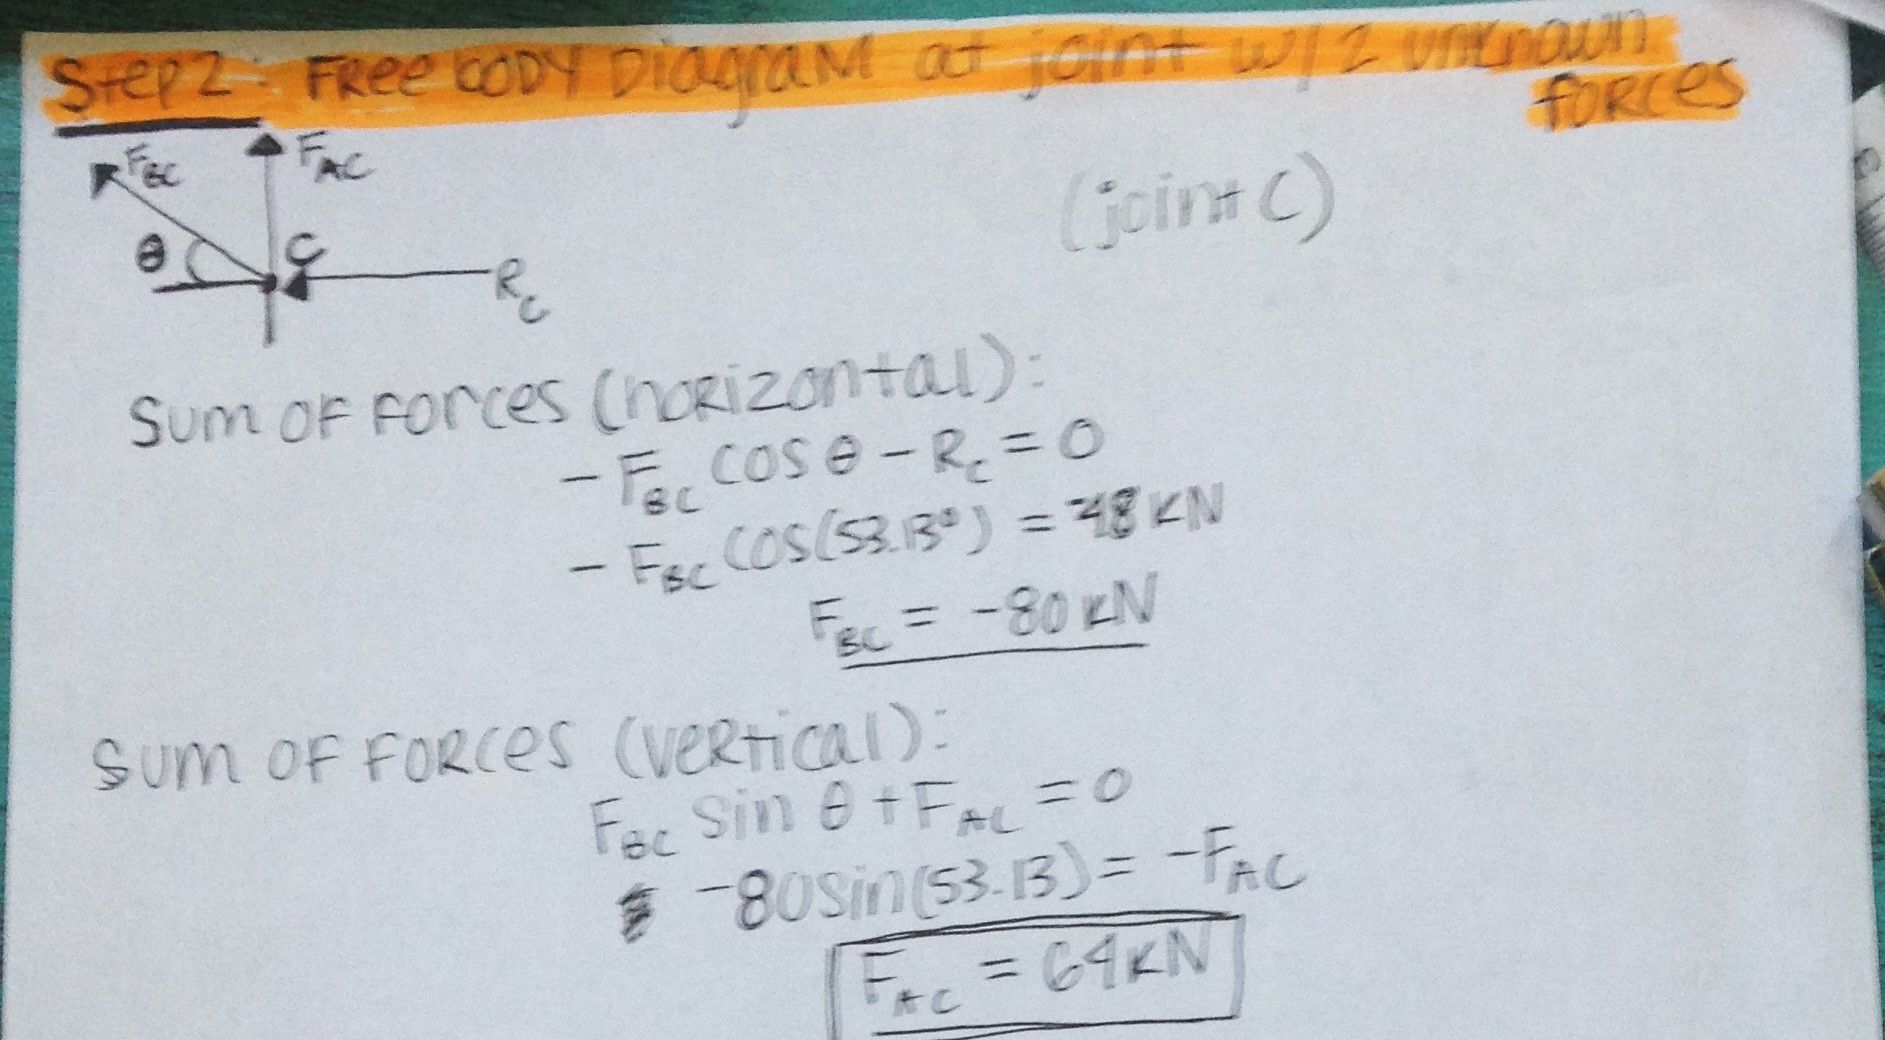 Step 2: Free Body Diagram at joint w/ 2 unknown
forces
F_BC
F_AC
(joint C)
θ
C
R_C
Sum of Forces (horizontal):
- F_BC cos θ - R_C = 0
- F_BC cos(53.13°) = 48 kN
F_BC = -80 kN
Sum of Forces (vertical):
F_BC sin θ + F_AC = 0
-80sin(53.13) = -F_AC
F_AC = 64 kN